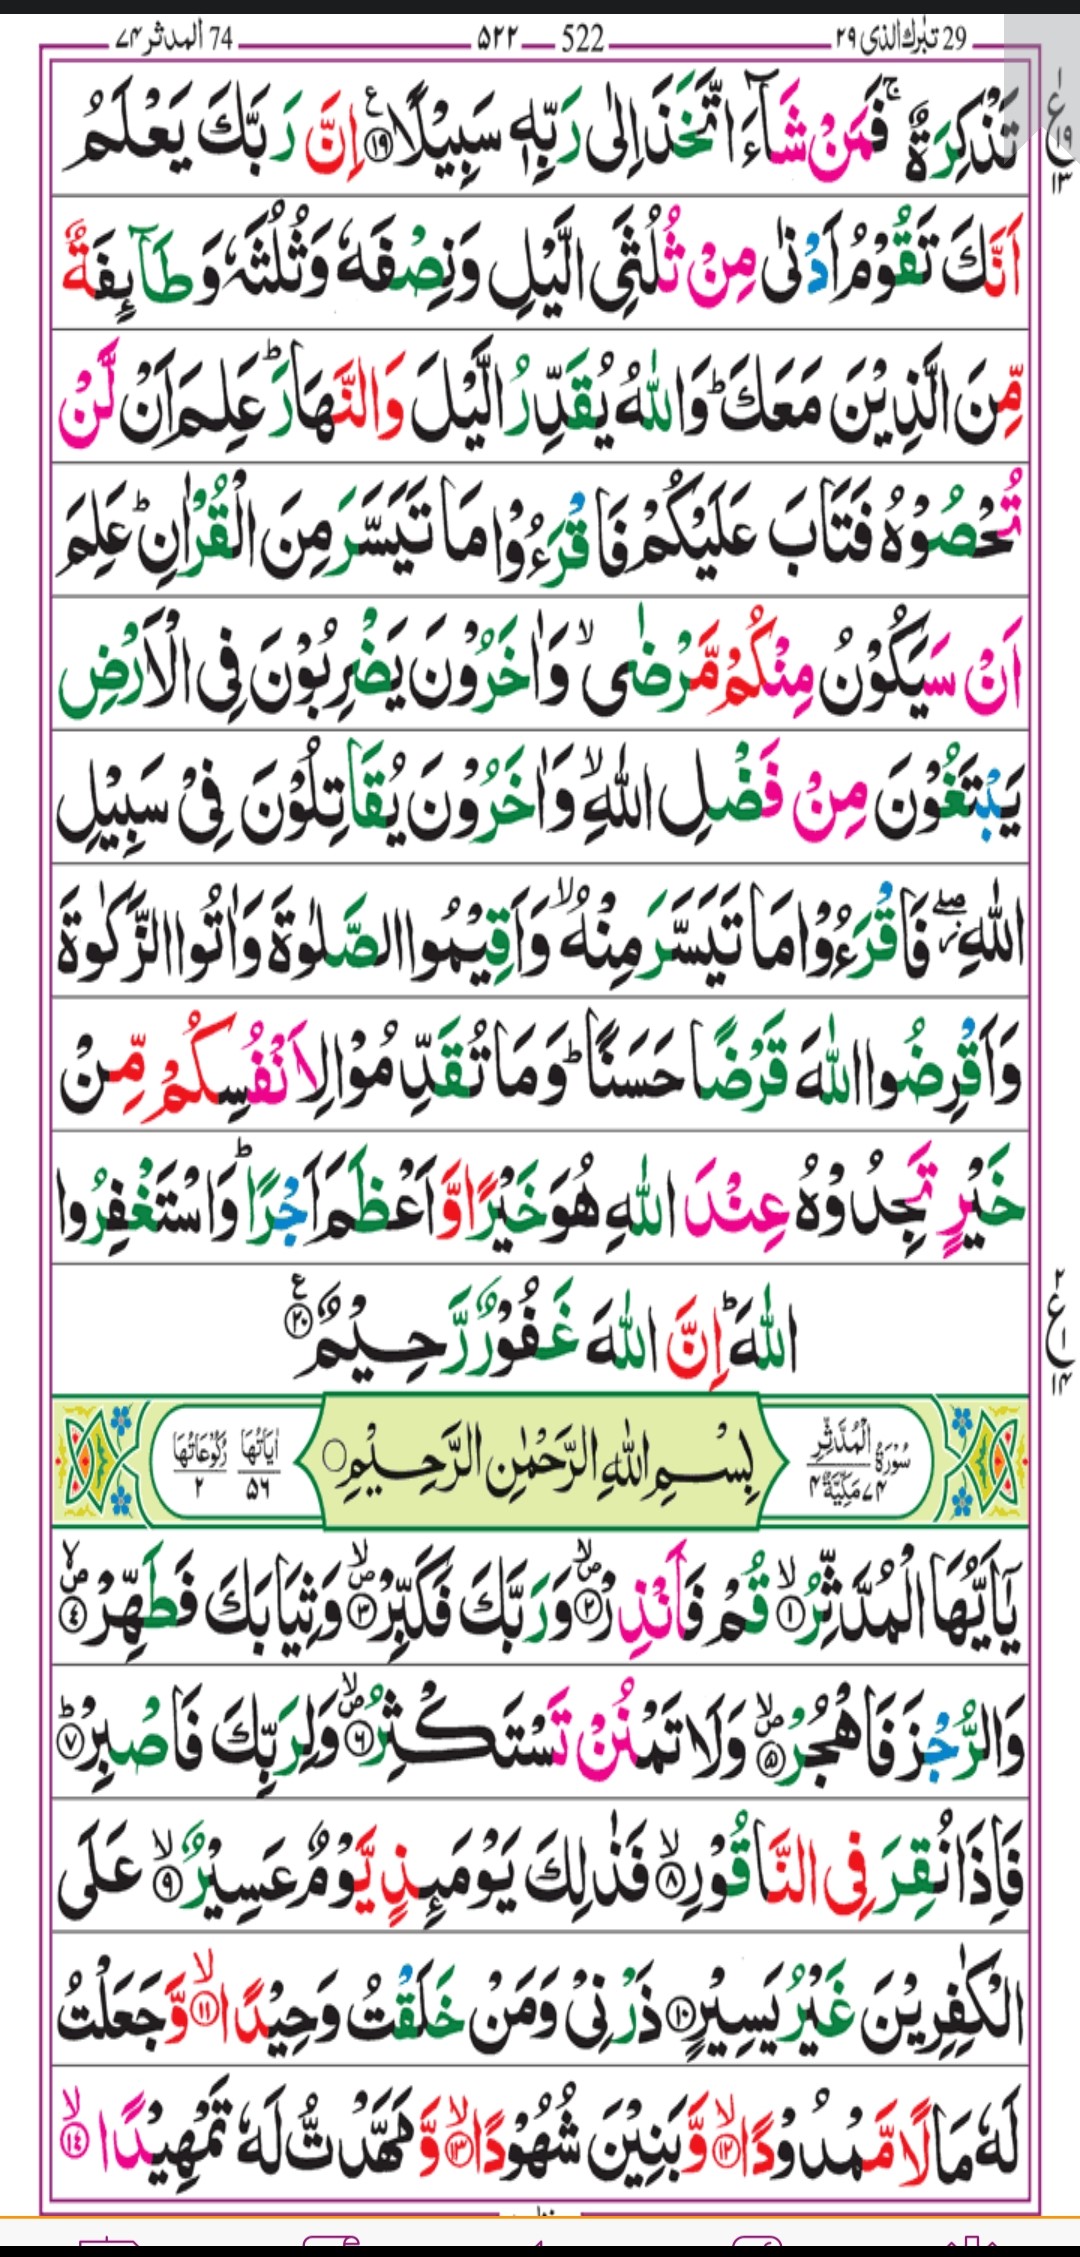 29 تبٰرك الذى ۲۹ 522 ۵۲۲ 74 المدثر ۷۴
تَذْكِرَةٌ ۚ فَمَنْ شَآءَ اتَّخَذَ اِلٰى رَبِّهٖ سَبِيْلًا ۧ‏﴿۱۹﴾ اِنَّ رَبَّكَ يَعْلَمُ
ع ۱ ۱۹ ۱۳
اَنَّكَ تَقُوْمُ اَدْنٰى مِنْ ثُلُثَىِ الَّيْلِ وَنِصْفَهٗ وَثُلُثَهٗ وَطَآئِفَةٌ
مِّنَ الَّذِيْنَ مَعَكَ ؕ وَاللّٰهُ يُقَدِّرُ الَّيْلَ وَالنَّهَارَ ؕ عَلِمَ اَنْ لَّنْ
تُحْصُوْهُ فَتَابَ عَلَيْكُمْ فَاقْرَءُوْا مَا تَيَسَّرَ مِنَ الْقُرْاٰنِ ؕ عَلِمَ
اَنْ سَيَكُوْنُ مِنْكُمْ مَّرْضٰى ۙ وَاٰخَرُوْنَ يَضْرِبُوْنَ فِى الْاَرْضِ
يَبْتَغُوْنَ مِنْ فَضْلِ اللّٰهِ ۙ وَاٰخَرُوْنَ يُقَاتِلُوْنَ فِىْ سَبِيْلِ
اللّٰهِ ۖ فَاقْرَءُوْا مَا تَيَسَّرَ مِنْهُ ۙ وَاَقِيْمُوا الصَّلٰوةَ وَاٰتُوا الزَّكٰوةَ
وَاَقْرِضُوا اللّٰهَ قَرْضًا حَسَنًا ؕ وَمَا تُقَدِّمُوْا لِاَنْفُسِكُمْ مِّنْ
خَيْرٍ تَجِدُوْهُ عِنْدَ اللّٰهِ هُوَ خَيْرًا وَّاَعْظَمَ اَجْرًا ؕ وَاسْتَغْفِرُوا
اللّٰهَ ؕ اِنَّ اللّٰهَ غَفُوْرٌ رَّحِيْمٌ ۧ‏﴿۲۰﴾
ع ۲ ۱ ۱۴
سُوْرَةُ الْمُدَّثِّرِ ۷۴ مَكِّيَّةٌ ۴
بِسْمِ اللّٰهِ الرَّحْمٰنِ الرَّحِيْمِ
اٰيَاتُهَا ۵۶ رُكُوْعَاتُهَا ۲
يٰۤاَيُّهَا الْمُدَّثِّرُ ۙ‏﴿۱﴾ قُمْ فَاَنْذِرْ ۙ‏﴿۲﴾ وَرَبَّكَ فَكَبِّرْ ۙ‏﴿۳﴾ وَثِيَابَكَ فَطَهِّرْ ۙ‏﴿۴﴾
وَالرُّجْزَ فَاهْجُرْ ۙ‏﴿۵﴾ وَلَا تَمْنُنْ تَسْتَكْثِرُ ۙ‏﴿۶﴾ وَلِرَبِّكَ فَاصْبِرْ ؕ‏﴿۷﴾
فَاِذَا نُقِرَ فِى النَّاقُوْرِ ۙ‏﴿۸﴾ فَذٰلِكَ يَوْمَئِذٍ يَّوْمٌ عَسِيْرٌ ۙ‏﴿۹﴾ عَلَى
الْكٰفِرِيْنَ غَيْرُ يَسِيْرٍ ﴿۱۰﴾ ذَرْنِىْ وَمَنْ خَلَقْتُ وَحِيْدًا ۙ‏﴿۱۱﴾ وَّجَعَلْتُ
لَهٗ مَالًا مَّمْدُوْدًا ۙ‏﴿۱۲﴾ وَّبَنِيْنَ شُهُوْدًا ۙ‏﴿۱۳﴾ وَّمَهَّدْتُّ لَهٗ تَمْهِيْدًا ۙ‏﴿۱۴﴾